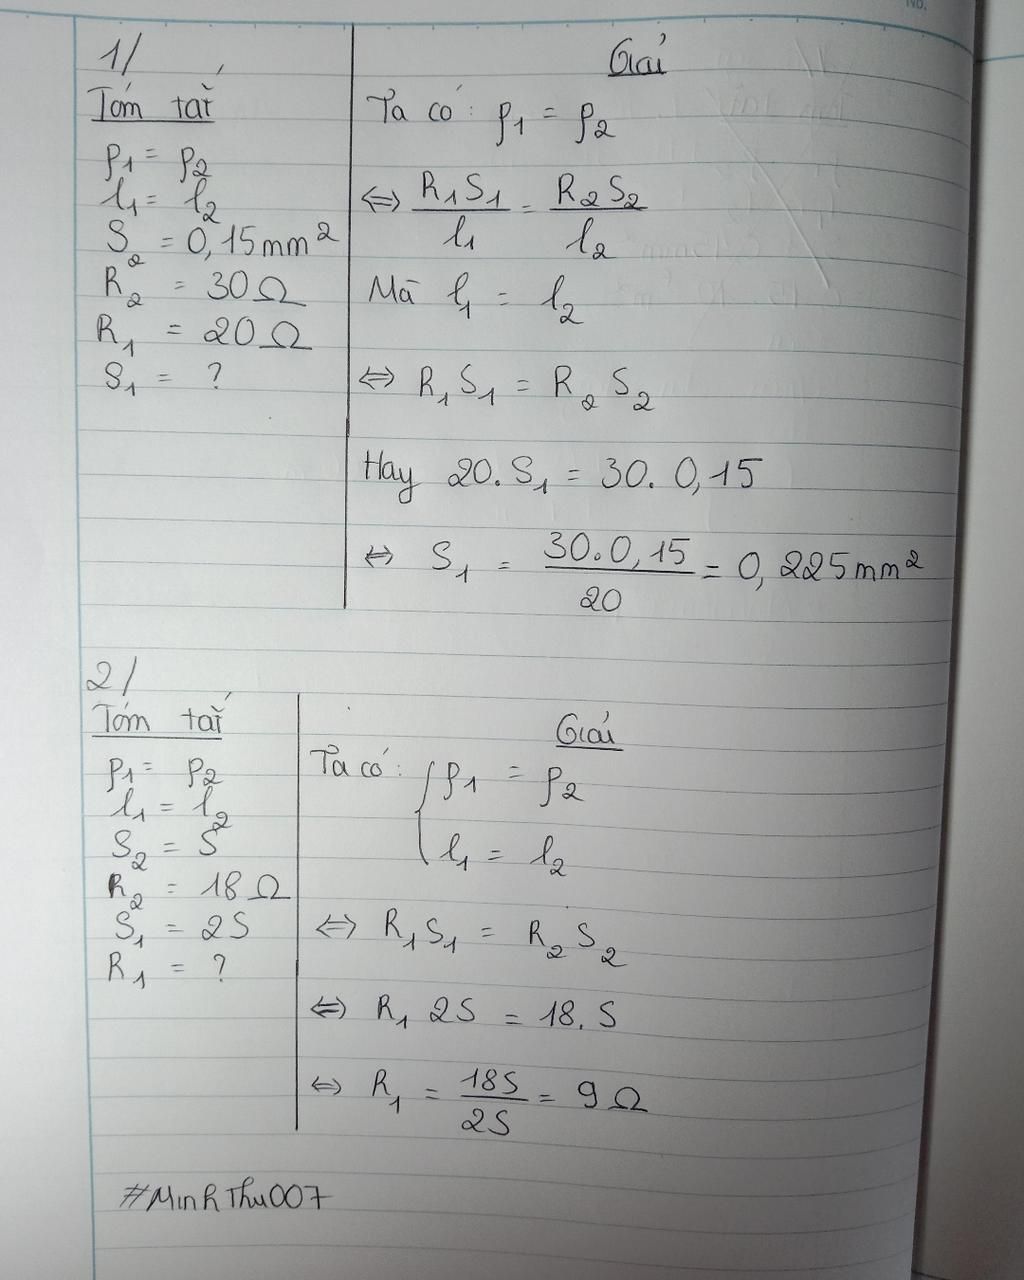 No.
1/
Tóm tắt
ρ1 = ρ2
l1 = l2
S2 = 0,15mm²
R2 = 30Ω
R1 = 20Ω
S1 = ?
Giải
Ta có: ρ1 = ρ2
⇔ R1S1/l1 = R2S2/l2
Mà l1 = l2
⇔ R1S1 = R2S2
Hay 20.S1 = 30.0,15
⇔ S1 = 30.0,15/20 = 0,225mm²
2/
Tóm tắt
ρ1 = ρ2
l1 = l2
S2 = S
R2 = 18Ω
S1 = 2S
R1 = ?
Giải
Ta có: { ρ1 = ρ2
l1 = l2
⇔ R1S1 = R2S2
⇔ R1 2S = 18.S
⇔ R1 = 18S/2S = 9Ω
#MinhThu007